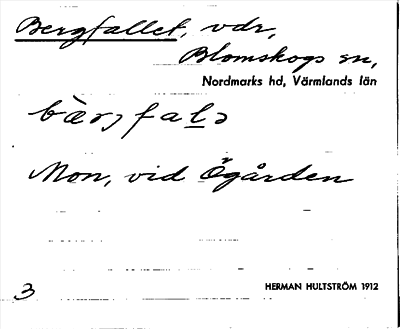 Bergfallet, vdr,
Blomskogs sn,
Nordmarks hd, Värmlands län
bæ̀rjfalə
Mon, vid Ögården
3
HERMAN HULTSTRÖM 1912